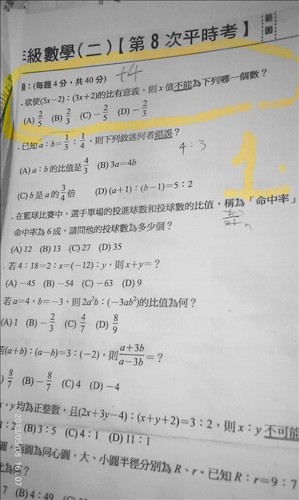 級數學(二)【第 8 次平時考】
範圍
:(每題 4 分,共 40 分) +4
.欲使(5x−2):(3x+2)的比有意義,則 x 值不能為下列哪一個數?
(A) 2/5 (B) 2/3 (C) −2/5 (D) −2/3
.已知 a:b=1/3:1/4,則下列敘述何者錯誤?
4:3
(A) a:b 的比值是 4/3 (B) 3a=4b
(C) b 是 a 的 3/4 倍 (D) (a+1):(b−1)=5:2
1.
.在籃球比賽中,選手單場的投進球數和投球數的比值,稱為「命中率」
命中率為 6 成,請問他的投球數為多少個?
(A) 12 (B) 13 (C) 27 (D) 35
.若 4:18=2:x=(−12):y,則 x+y=?
(A) −45 (B) −54 (C) −63 (D) 9
若 a=4,b=−3,則 2a²b:(−3ab²)的比值為何?
(A) 1 (B) −2/3 (C) 4/7 (D) 8/9
若(a+b):(a−b)=3:(−2),則 a+3b/a−3b=?
) 8/7 (B) −8/7 (C) 4 (D) −4
、y 均為正整數,且(2x+3y−4):(x+y+2)=3:2,則 x:y 不可能
:2 (B) 3:5 (C) 4:1 (D) 11:1
圓為同心圓,大、小圓半徑分別為 R、r。已知 R:r=9:7
比為何?
7 (B) 4:49
2014/05/06 16:07